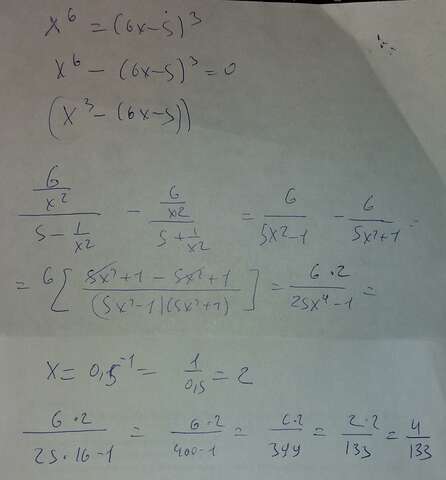 x⁶ = (6x-5)³
x⁶ - (6x-5)³ = 0
(x³ - (6x-5))
(6/x²)/(5 - 1/x²) - (6/x²)/(5 + 1/x²) = 6/(5x²-1) - 6/(5x²+1) =
= 6 [(5x²+1 - 5x²+1)/((5x²-1)(5x²+1))] = (6·2)/(25x⁴-1) =
x = 0,5⁻¹ = 1/0,5 = 2
(6·2)/(25·16-1) = (6·2)/(400-1) = (6·2)/399 = (2·2)/133 = 4/133